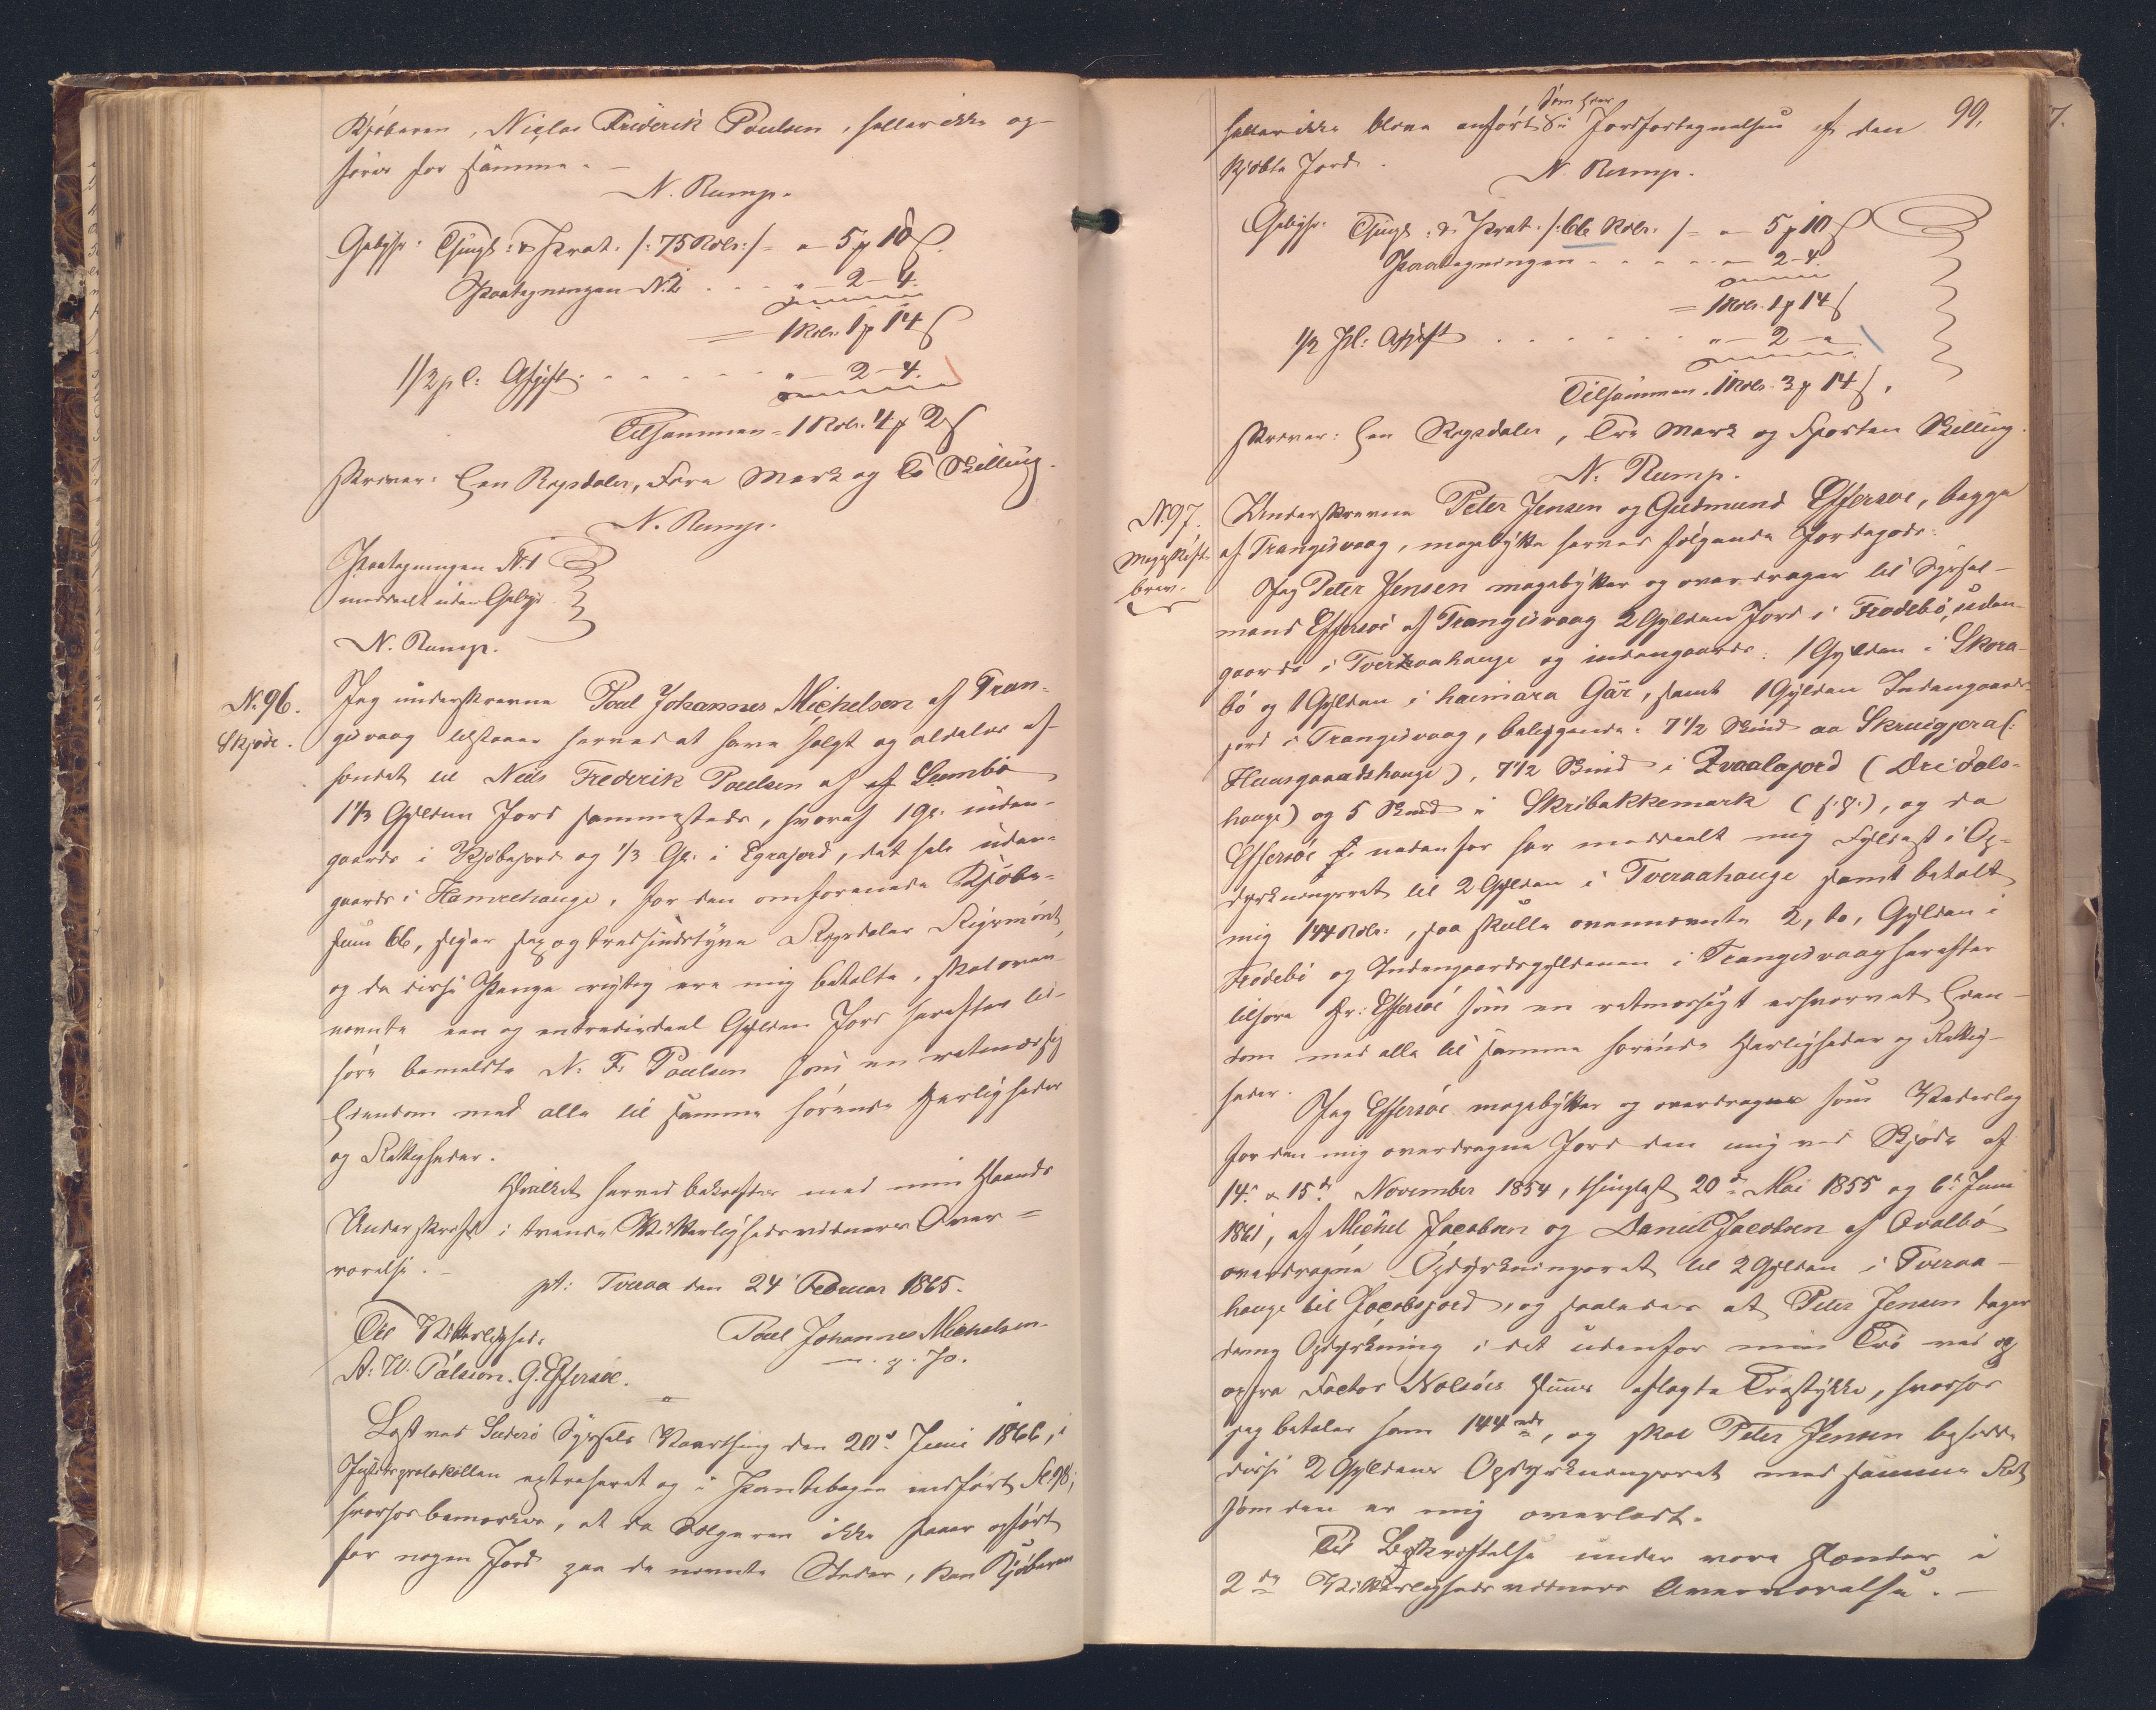 Kjöberen, Niclas Friderik Poulsen, heller ikke op-
föres for samme. –
N. Rump.
Gebyhr: Thingl: & Prot. /: 75 Rdlr: / = „ – 5 ℳ 10 ß
Paategningen N. 2 . . . „ – 2 – 4.
= 1 Rdlr. 1 ℳ 14 ß
1/2 p C: Afgift . . . . . „ – 2 – 4.
Tilsammen = 1 Rdlr. 4 ℳ 2 ß
skriver: Een Rigsdaler, Fire Mark og To Skilling.
N. Rump.
Paategningen N. 1
meddeelt uden Gebyr.
N. Rump.
N. 96.
Skjøde.
Jeg underskrevne Poul Johannes Michelsen af Tran-
gisvaag tilstaaer herved at have solgt og aldeles af-
hændet til Niels Frederik Poulsen af af Sumbö
1 1/3 Gylden Jord sammesteds, hvoraf 1 Gl. inden-
gaards i Kjöbejord og 1/3 Gl: i Egrajord, det hele uden-
gaards i Hamrehauge, for den omforenede Kjöbe-
sum 66, siger sex og tredsindstyve Rigsdaler Rigsmönt,
og da disse Penge rigtig ere mig betalte, skal oven-
nævnte een og entrediedeel Gylden Jord herefter til-
höre bemeldte N. F. Poulsen som en retmæssig
Eiendom med alle til samme hörende Herligheder
og Rettigheder.
Hvilket herved bekræftes med min Haands
Underskrift i tvende Vitterlighedsvidners Over=
værelse. –
pt: Tveraa den 24 Februar 1865.
Til Vitterlighed. Poul Johannes Michelsen
A: W. Pálsson. G. Effersöe. m. p. P.
Læst ved Suderö Syssels Vaarthing den 20de Juni 1866, i
Justitsprotokollen extraheret og i Pantebogen indfört Fol. 98;
hvorhos bemærkes, at da Sælgeren ikke staaer opfört
for nogen Jord paa de nævnte Steder, kan Kjöberen
99.
heller ikke blive anfört som Eier i Jordfortegnelsen af den
kjöbte Jord.
N. Rump.
Gebyhr. Thingl: & Prot. /: 66 Rdlr. / = „ – 5 ℳ 10 ß
Paategningen . . . . . „ – 2 – 4.
= 1 Rdlr. 1 ℳ 14 ß
1/2 pC: Afgift . . . . . . „ – 2 – „
Tilsammen. 1 Rdlr. 3 ℳ 14 ß.
skriver: Een Rigsdaler, Tre Mark og Fjorten Skilling.
N. Rump.
N. 97.
Mageskifte-
brev.
Underskrevne Peter Jensen og Gudmund Effersøe, begge
af Trangisvaag, magebytte herved fölgende Jordegods:
Jeg Peter Jensen magebytter og overdrager til Syssel-
mand Effersöe af Trangisvaag 2 Gylden Jord i Frodebö, uden-
gaards i Tveraahauge og indengaards: 1 Gylden i Skora-
bö og 1 Gylden i heimara Gär, samt 1 Gylden Indengaards-
jord i Trangisvaag, beliggende: 7 1/2 Skind aa Skruigjera (:
Huusgaardshauge), 7 1/2 Skind i Zvaalajord (Dridals-
hauge) og 5 Skind i Skribakkemark (s. g.), og da
Effersöe nedenfor har meddeelt mig Fyldest i Op-
dyrkningsret til 2 Gylden i Tveraahauge samt betalt
mig 144 Rdlr:, saa skulle ovennævnte 2, to, Gylden i
Frodebö og Indengaardsgyldenen i Trangisvaag herefter
tilhøre Hr: Effersöe som en retmæssigt erhvervet Eien-
dom med alle til samme hörende Herligheder og Rettig-
heder.
Jeg Effersöe magebytter og overdrager som Vederlag
for den mig overdragne Jord den mig ved Skjöde af
14de & 15de November 1854, thinglæst 20de Mai 1855 og 6te Juni
1861, af Michel Jacobsen og Daniel Jacobsen af Qvalbö
overdragne Opdyrkningsret til 2 Gylden i Tveraa-
hauge til Jacobsjord, og saaledes at Peter Jensen tager
denne Opdyrkning i det udenfor min Trö ved og
opfra Factor Nolsöes Huus aflagte Tröstykke, hvorfor
jeg betaler ham 144 rdr, og skal Peter Jensen besidde
disse 2 Gyldens Opdyrkningsret med samme Ret
som den er mig overladt.
Til Bekræftelse under vore Hænder i
2de Vitterlighedsvidners Overværelse. –